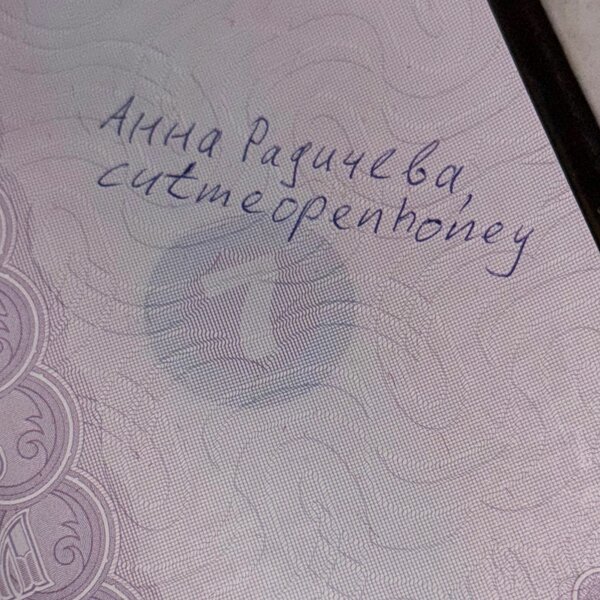 Анна Радичева,
cutmeopenhoney
7